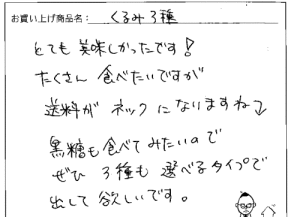 お買い上げ商品名： くるみ3種
とても美味しかったです！
たくさん食べたいですが
送料がネックになりますね↘
黒糖も食べてみたいので
ぜひ3種も選べるタイプで
出して欲しいです。